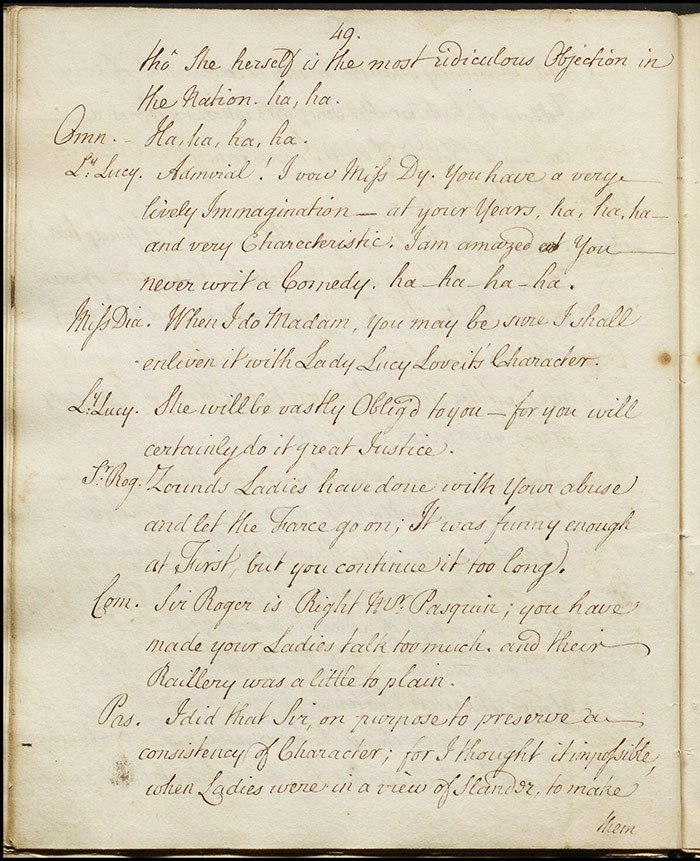 49.
tho' She herself is the most ridiculous Objection in
the Nation. ha, ha.
Omn. - Ha, ha, ha, ha.
Ly. Lucy. Admirial! I vow Miss Dy. You have a very
lively Immagination — at your Years, ha, ha, ha —
and very Charecteristic. I am amazed You
never writ a Comedy. ha — ha — ha — ha.
Miss Dia. When I do Madam, you may be sure I shall
enliven it with Lady Lucy Loveit's Character.
Ly. Lucy. She will be vastly Oblig'd to you — for you will
certainly do it great Justice.
Sr. Rog. Zounds Ladies have done with Your abuse
and let the Farce go on; It was funny enough
at First, but you continue it too long.
Com. Sir Roger is Right Mr. Pasquin; you have
made your Ladies talk too much. and their
Raillery was a little to plain.
Pas. I did that Sir, on purpose to preserve a
consistency of Character; for I thought it impossible,
when Ladies were in a view of Slander, to make
them